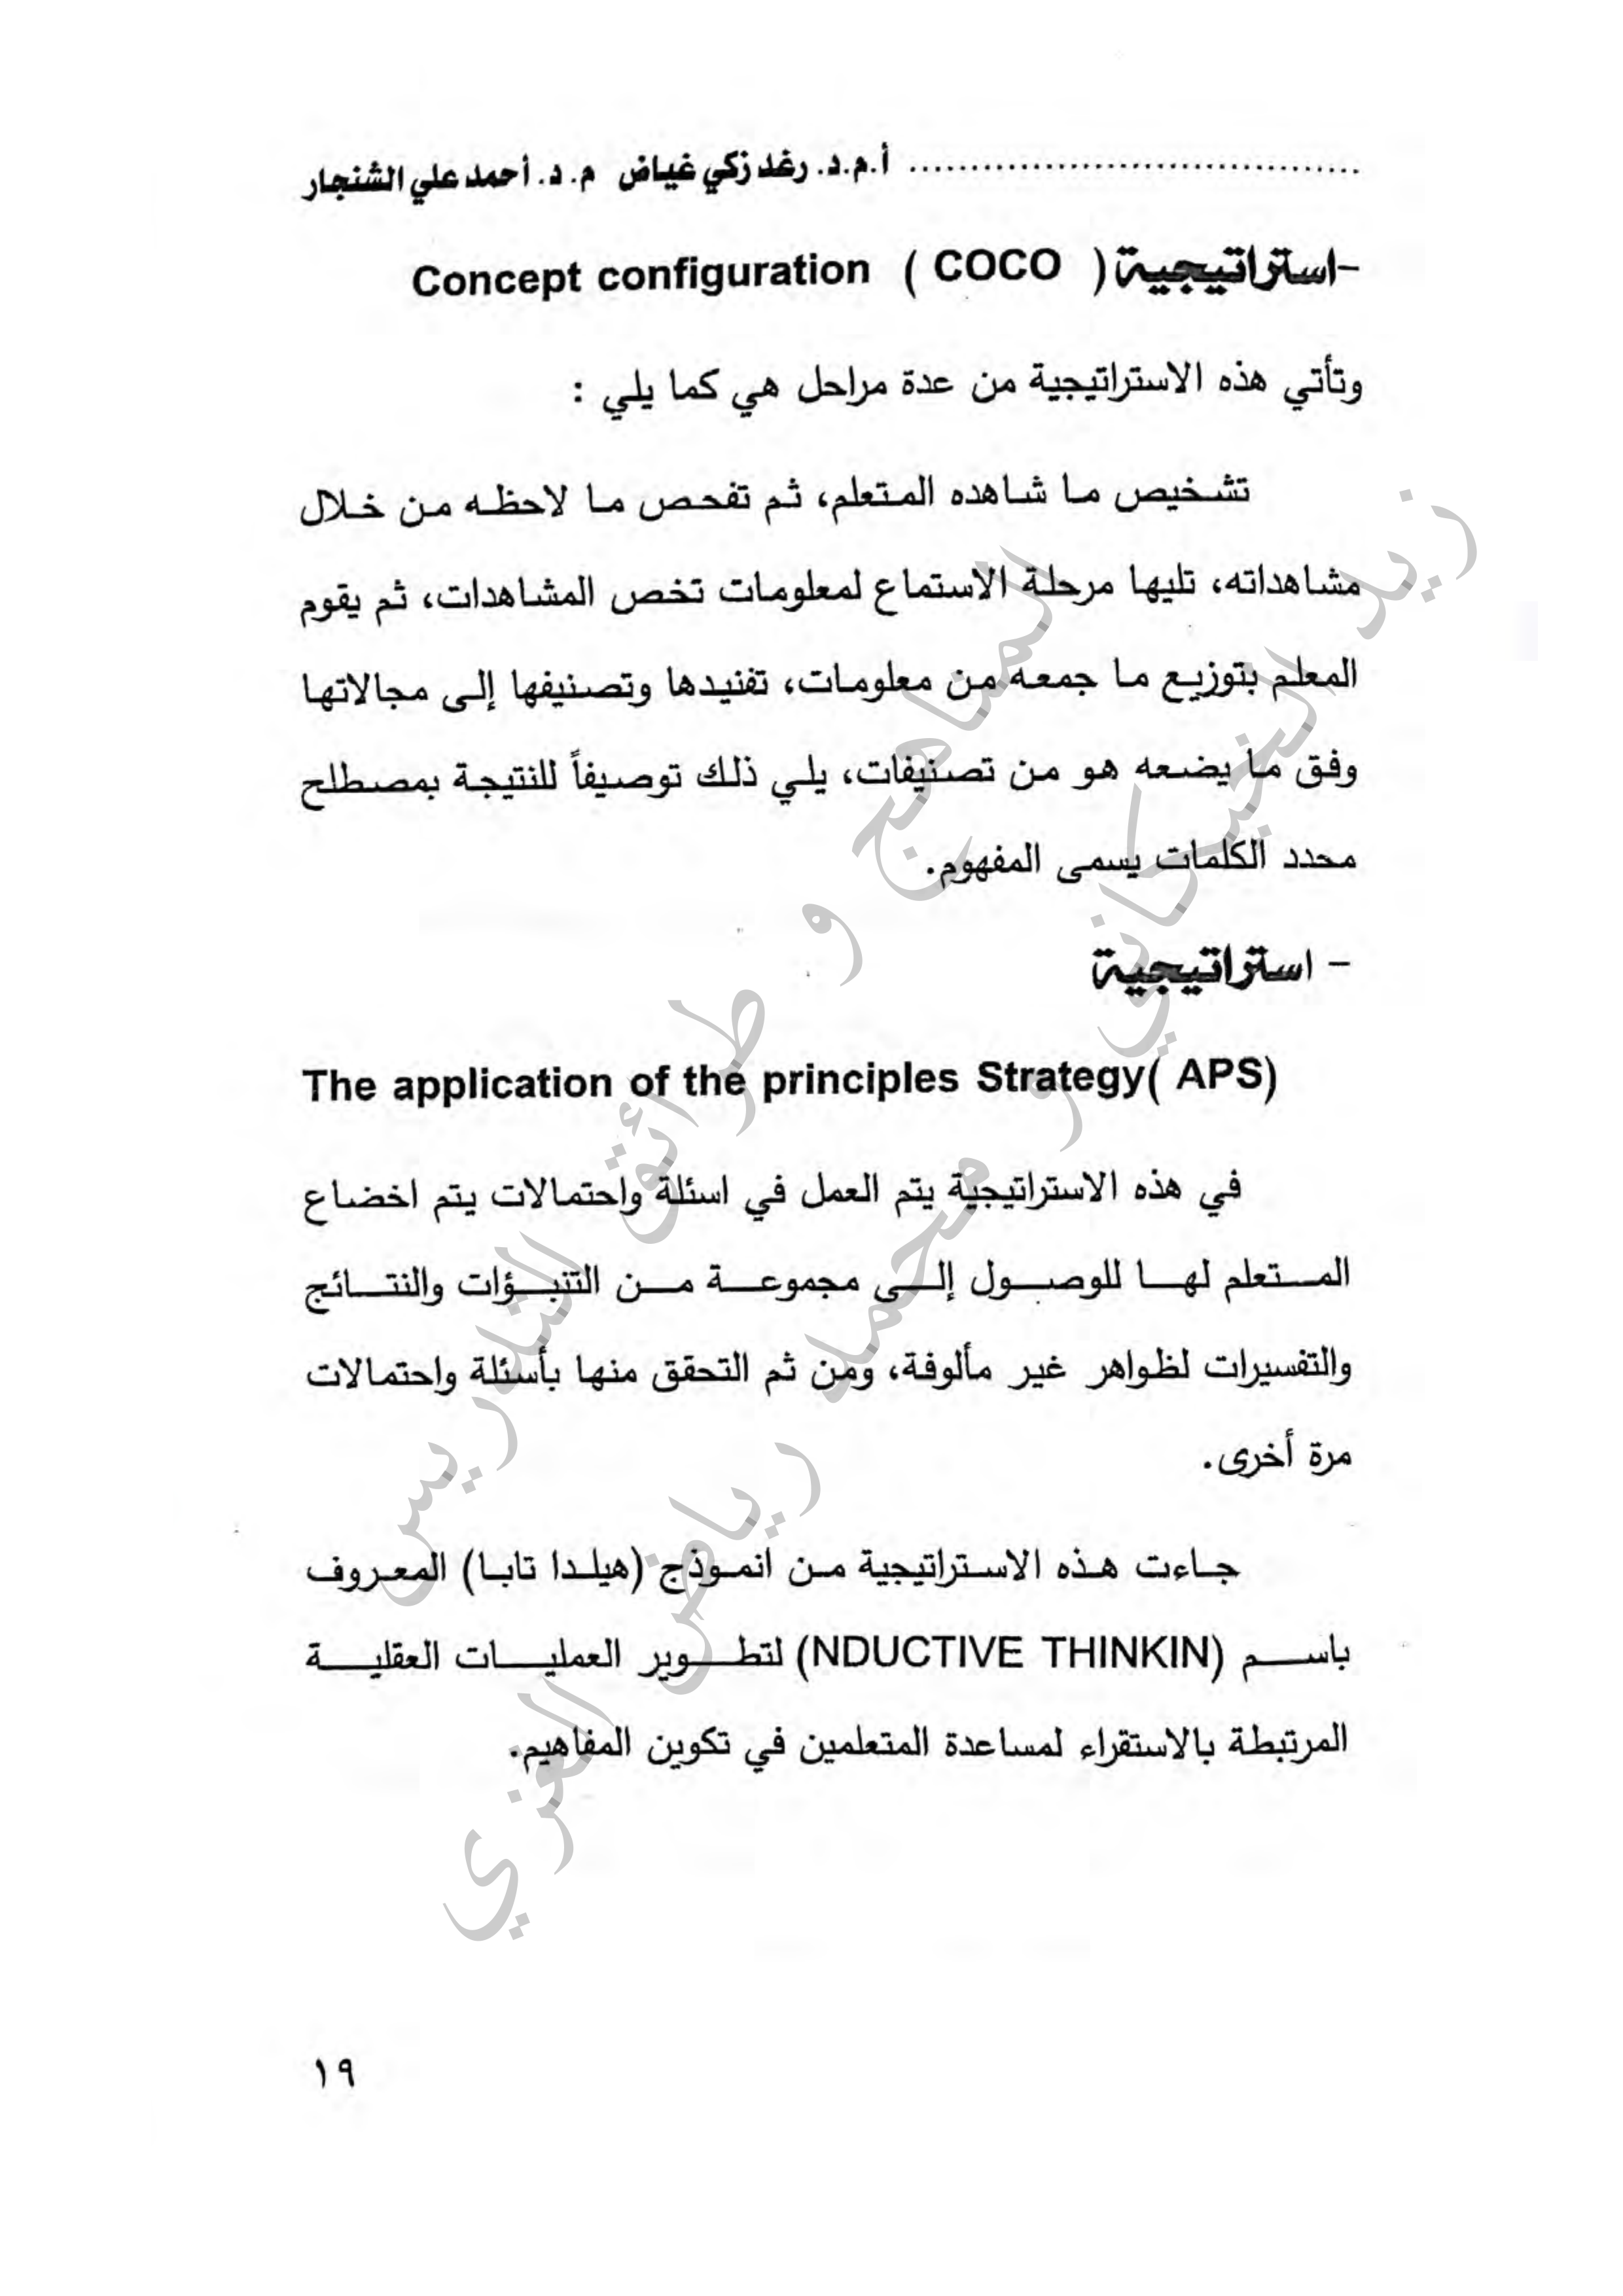 أ.م.د. رغد زكي غياض م. د. أحمد علي الشنجار
-استراتيجية ( COCO ) Concept configuration
وتأتي هذه الاستراتيجية من عدة مراحل هي كما يلي :
تشخيص ما شاهده المتعلم، ثم تفحص ما لاحظه من خلال
مشاهداته، تليها مرحلة الاستماع لمعلومات تخص المشاهدات، ثم يقوم
المعلم بتوزيع ما جمعه من معلومات، تفنيدها وتصنيفها إلى مجالاتها
وفق ما يضعه هو من تصنيفات، يلي ذلك توصيفاً للنتيجة بمصطلح
محدد الكلمات يسمى المفهوم.
- استراتيجية
The application of the principles Strategy( APS)
في هذه الاستراتيجية يتم العمل في اسئلة واحتمالات يتم اخضاع
المتعلم لها للوصول إلى مجموعة من التنبؤات والنتائج
والتفسيرات لظواهر غير مألوفة، ومن ثم التحقق منها بأسئلة واحتمالات
مرة أخرى.
جاءت هذه الاستراتيجية من انموذج (هيلدا تابا) المعروف
باسم (NDUCTIVE THINKIN) لتطوير العمليات العقلية
المرتبطة بالاستقراء لمساعدة المتعلمين في تكوين المفاهيم.
١٩
المناهج و طرائق التدريس
زيد الخيكاني و محمد رياض الغزي